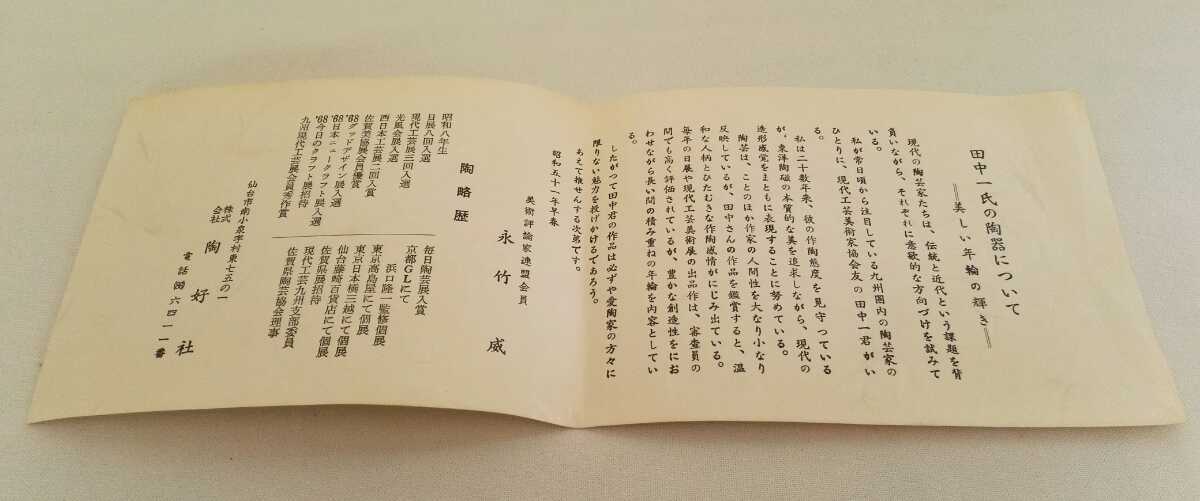 田中一氏の陶器について
＝美しい年輪の輝き＝
現代の陶芸家たちは、伝統と近代という課題を背
負いながら、それぞれに意欲的な方向づけを試みて
いる。
私が常日頃から注目している九州圏内の陶芸家の
ひとりに、現代工芸美術家協会友の田中一君がい
る。
私は二十数年来、彼の作陶態度を見守っている
が、東洋陶磁の本質的な美を追求しながら、現代の
造形感覚をまともに表現することに努めている。
陶芸は、ことのほか作家の人間性を大なり小なり
反映しているが、田中さんの作品を鑑賞すると、温
和な人柄とひたむきな作陶感情がにじみ出ている。
毎年の日展や現代工芸美術展の出品作は、審査員の
間でも高く評価されているが、豊かな創造性をにお
わせながら長い間の積み重ねの年輪を内容としてい
る。
したがって田中君の作品は必ずや愛陶家の方々に
限りない魅力を投げかけるであろう。
あえて推せんする次第です。
昭和五十一年早春
美術評論家連盟会員
永竹威
陶略歴
昭和八年生
日展八回入選
現代工芸展三回入選
光風会展入選
西日本工芸展二回入賞
佐賀美協展会員優賞
'68グッドデザイン展入選
'68日本ニュークラフト展入選
'68今日のクラフト展招待
九州現代工芸展会員秀作賞
毎日陶芸展入賞
京都GLにて
浜口隆一監修個展
東京高島屋にて個展
東京日本橋三越にて個展
仙台藤崎百貨店にて個展
佐賀県展招待
現代工芸九州支部委員
佐賀県陶芸協会理事
仙台市南小泉字村東七五の一
株式会社 陶好社
電話 六四一一番